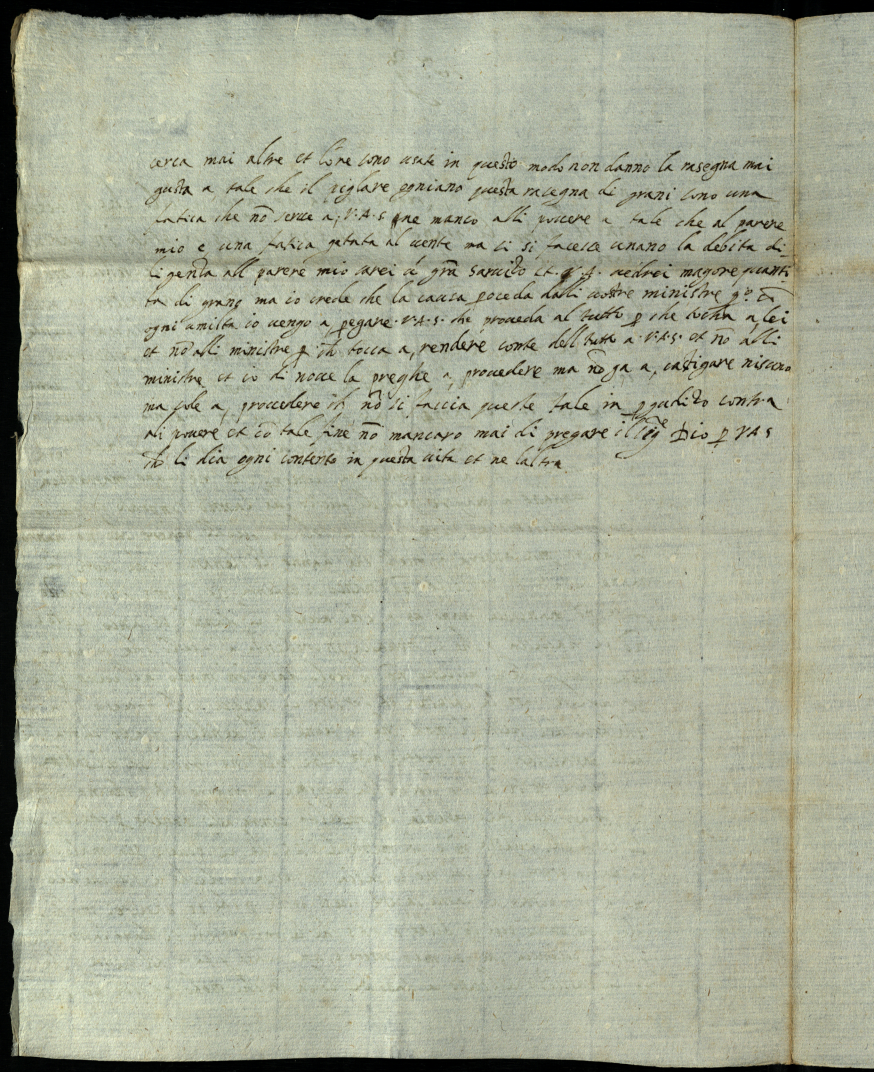 cerca mai altre et lore sono usate in questo modo non danno la rasegna mai
gusta a tale che il piglare ogniano questa rasegna di grani sono una
fatica che nō serve a, V.A.S. ne manco alli povere a tale che al parere
mio e una fatica getata al vente ma ci si facese unano la debita di-
ligenda all parere mio sarei di grā et V.A. vedrei magore quanti
ta di grano ma io crede che la causa proceda dalli vostre ministre
ogni umilta io vengo a pregare V.A.S. che proveda al tutto p che tocha a lei
et nō alli ministre p ch tocca a, rendere conte dell tutto a V.A.S. et nō alli
ministre et io di nove la preghe a, provedere ma nō ga a, castigare nisuno
ma sole a, provedere ch nō si faccia queste tale in pgudizo contra
ai povere et cō tale fine nō mancaro mai di pregare il sige Dio p VAS
ch li dia ogni contento in questa vita et ne laltra